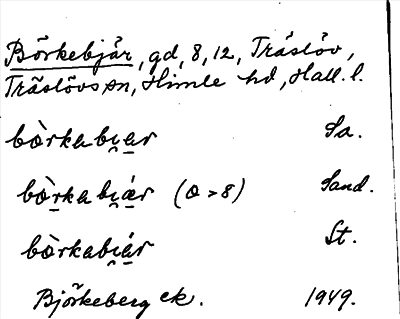 Börkebjär, gd, 8, 12, Träslöv,
Träslövs sn, Himle hd, Hall. l.
bòrkabi̯ar Sa.
bòrkabi̯ár (o > 8) Sand.
bòrkabi̯ár St.
Björkeberg ek. 1949.